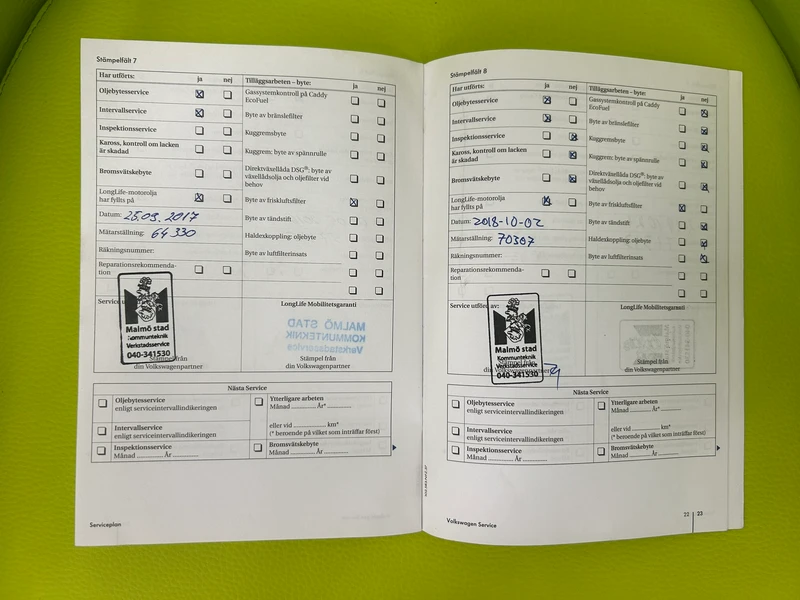 Stämpelfält 7
Har utförts: ja nej
Oljebytesservice
Intervallservice
Inspektionsservice
Kaross, kontroll om lacken
är skadad
Bromsvätskebyte
LongLife-motorolja
har fyllts på
Datum: 25.09.2017
Mätarställning: 64330
Räkningsnummer:
Reparationsrekommenda-
tion
Tilläggsarbeten – byte: ja nej
Gassystemkontroll på Caddy
EcoFuel
Byte av bränslefilter
Kuggremsbyte
Kuggrem: byte av spännrulle
Direktväxellåda DSG®: byte av
växellådsolja och oljefilter vid
behov
Byte av friskluftsfilter
Byte av tändstift
Haldexkoppling: oljebyte
Byte av luftfilterinsats
Service u
Malmö stad
Kommunteknik
Verkstadsservice
040-341530
Stämpel från
din Volkswagenpartner
LongLife Mobilitetsgaranti
MALMÖ STAD
KOMMUNTEKNIK
Verkstadsservice
Stämpel från
din Volkswagenpartner
Nästa Service
Oljebytesservice
enligt serviceintervallindikeringen
Intervallservice
enligt serviceintervallindikeringen
Inspektionsservice
Månad ............ År ............
Ytterligare arbeten
Månad ............ År* ............
eller vid ............ km*
(* beroende på vilket som inträffar först)
Bromsvätskebyte
Månad ............ År ............
Serviceplan
Stämpelfält 8
Har utförts: ja nej
Oljebytesservice
Intervallservice
Inspektionsservice
Kaross, kontroll om lacken
är skadad
Bromsvätskebyte
LongLife-motorolja
har fyllts på
Datum: 2018-10-02
Mätarställning: 70307
Räkningsnummer:
Reparationsrekommenda-
tion
Tilläggsarbeten – byte: ja nej
Gassystemkontroll på Caddy
EcoFuel
Byte av bränslefilter
Kuggremsbyte
Kuggrem: byte av spännrulle
Direktväxellåda DSG®: byte av
växellådsolja och oljefilter vid
behov
Byte av friskluftsfilter
Byte av tändstift
Haldexkoppling: oljebyte
Byte av luftfilterinsats
Service utförd av:
Malmö stad
Kommunteknik
Verkstadsservice
040-341530
Stämpel från
din Volkswagenpartner
LongLife Mobilitetsgaranti
Stämpel från
din Volkswagenpartner
Nästa Service
Oljebytesservice
enligt serviceintervallindikeringen
Intervallservice
enligt serviceintervallindikeringen
Inspektionsservice
Månad ............ År ............
Ytterligare arbeten
Månad ............ År* ............
eller vid ............ km*
(* beroende på vilket som inträffar först)
Bromsvätskebyte
Månad ............ År ............
Volkswagen Service
22 | 23